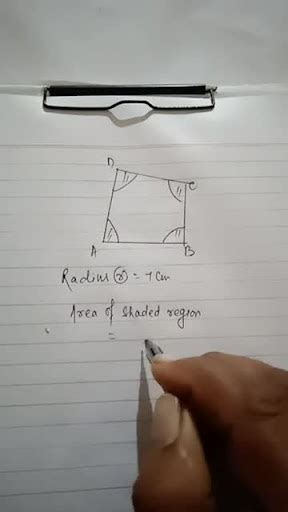 D
C
A
B
Radius (r) = 7 cm
Area of shaded region
=